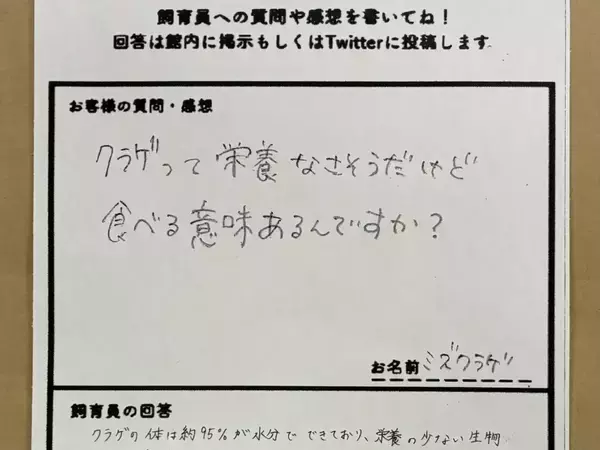 飼育員への質問や感想を書いてね！
回答は館内に掲示もしくはTwitterに投稿します
お客様の質問・感想
クラゲって栄養なさそうだけど
食べる意味あるんですか？
お名前 ミズクラゲ
飼育員の回答
クラゲの体は約95%が水分でできており、栄養の少ない生物